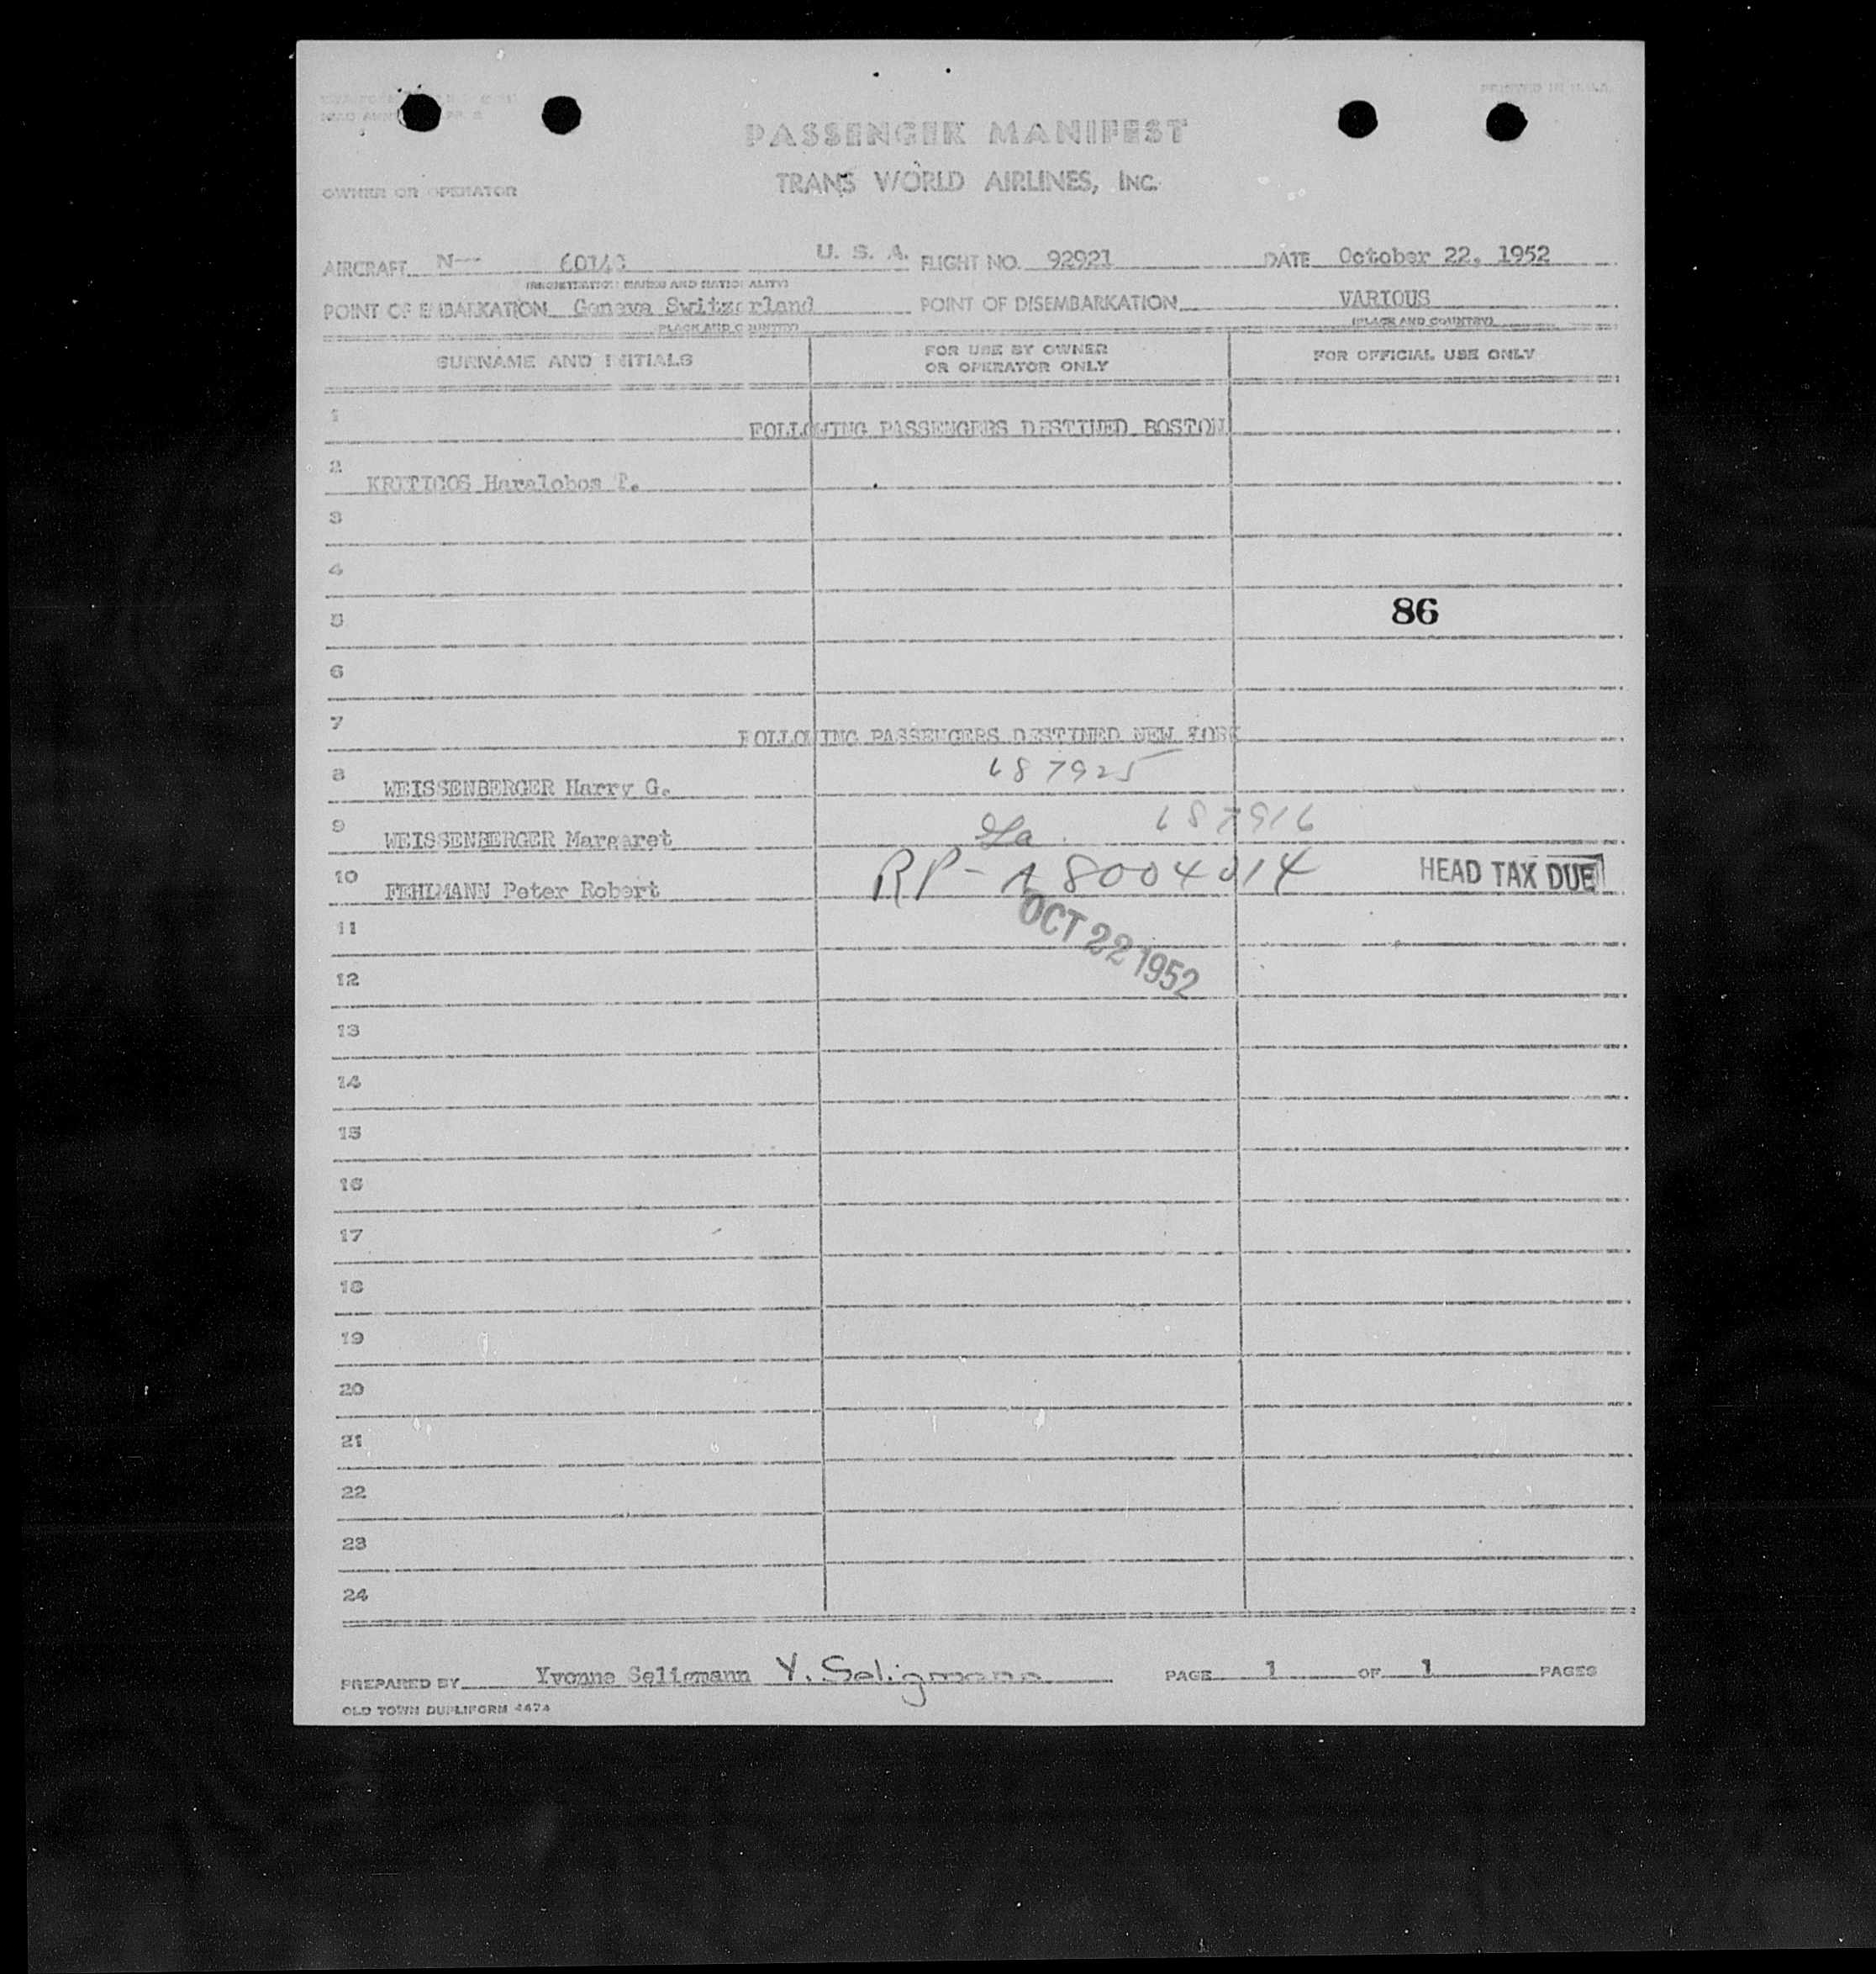 PRINTED IN U.S.A.
PASSENGER MANIFEST
TRANS WORLD AIRLINES, INC.
OWNER OR OPERATOR
AIRCRAFT N-- U. S. A. FLIGHT NO. 92921 DATE October 22, 1952
(REGISTRATION MARKS AND NATIONALITY)
POINT OF EMBARKATION Geneva Switzerland POINT OF DISEMBARKATION VARIOUS
(PLACE AND COUNTRY) (PLACE AND COUNTRY)
SURNAME AND INITIALS FOR USE BY OWNER OR OPERATOR ONLY FOR OFFICIAL USE ONLY
1 FOLLOWING PASSENGERS DESTINED BOSTON
2 KRITICOS Haralobos
3
4
5 86
6
7 FOLLOWING PASSENGERS DESTINED NEW YORK
8 WEISSENBERGER Harry G. 687925
9 WEISSENBERGER Margaret 687916
10 FEHLMANN Peter Robert RP- A8004014 HEAD TAX DUE
11 OCT 22 1952
12
13
14
15
16
17
18
19
20
21
22
23
24
PREPARED BY Yvonne Seligmann Y. Seligmann PAGE 1 OF 1 PAGES
OLD TOWN DUPLIFORM 4474